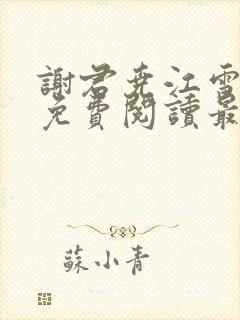 謝君堯江雪
免費閱讀最
蘇小青